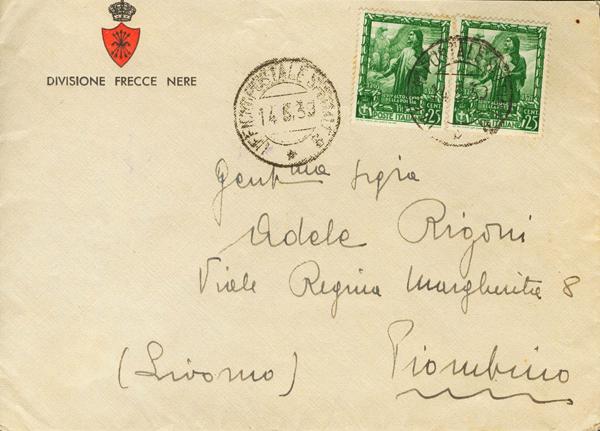 DIVISIONE FRECCE NERE
UFFICIO POSTALE SPECIALE 9
14.5.39
POSTE ITALIANE
CENT 25
POSTE ITALIANE
CENT 25
Gent ma Sigra
Adele Rigoni
Viale Regina Margherita 8
Piombino
(Livorno)